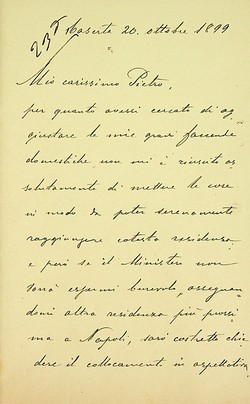 235
Caserta 20. ottobre 1899
Mio carissimo Pietro,
per quanto avessi cercato di ag
giustare le mie gravi faccende
domestiche non mi è riuscito as
solutamente di mettere le cose
in modo da poter serenamente
raggiungere cotesta residenza
e però se il Ministero non
vorrà essermi benevolo, assegnan
domi altra residenza più prossi
ma a Napoli, sarò costretto chie
dere il collocamento in aspettativa